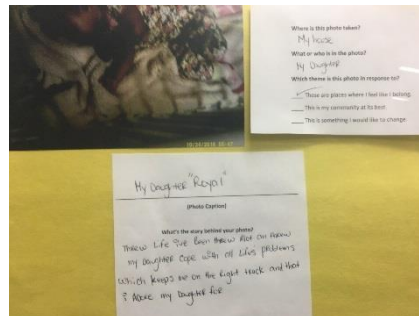 Where is this photo taken?
My house
What or who is in the photo?
My Daughter
Which theme is this photo in response to?
These are places where I feel like I belong.
This is my community at its best.
This is something I would like to change.
My Daughter "Royal"
(Photo Caption)
What's the story behind your photo?
Threw Life I've been threw alot an
my Daughter cope with all Life's problems
which keeps me on the Right track and that
I Adore my Daughter for